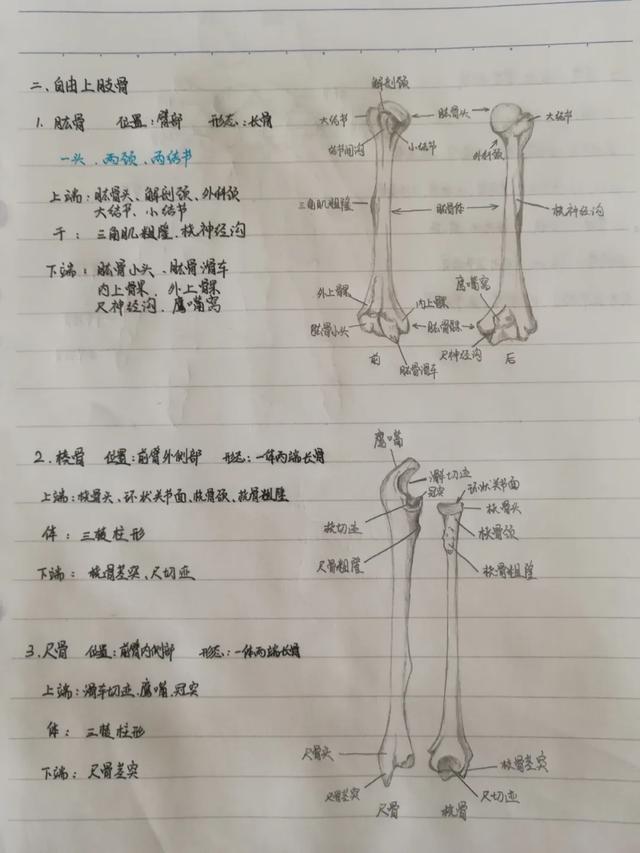 二、自由上肢骨
1. 肱骨 位置:臂部 形态:长骨
一头、两颈、两结节
上端:肱骨头、解剖颈、外科颈
大结节、小结节
干:三角肌粗隆、桡神经沟
下端:肱骨小头、肱骨滑车
内上髁、外上髁
尺神经沟、鹰嘴窝
解剖颈
大结节
肱骨头
大结节
结节间沟
小结节
外科颈
三角肌粗隆
肱骨体
桡神经沟
外上髁
内上髁
鹰嘴窝
肱骨小头
肱骨髁
尺神经沟
前
肱骨滑车
后
2. 桡骨 位置:前臂外侧部 形态:一体两端长骨
上端:桡骨头、环状关节面、桡骨颈、桡骨粗隆
体:三棱柱形
下端:桡骨茎突、尺切迹
3. 尺骨 位置:前臂内侧部 形态:一体两端长骨
上端:滑车切迹、鹰嘴、冠突
体:三棱柱形
下端:尺骨茎突
鹰嘴
滑车切迹
冠突
环状关节面
桡骨头
桡切迹
桡骨颈
尺骨粗隆
桡骨粗隆
尺骨头
桡骨茎突
尺骨茎突
尺切迹
尺骨
桡骨